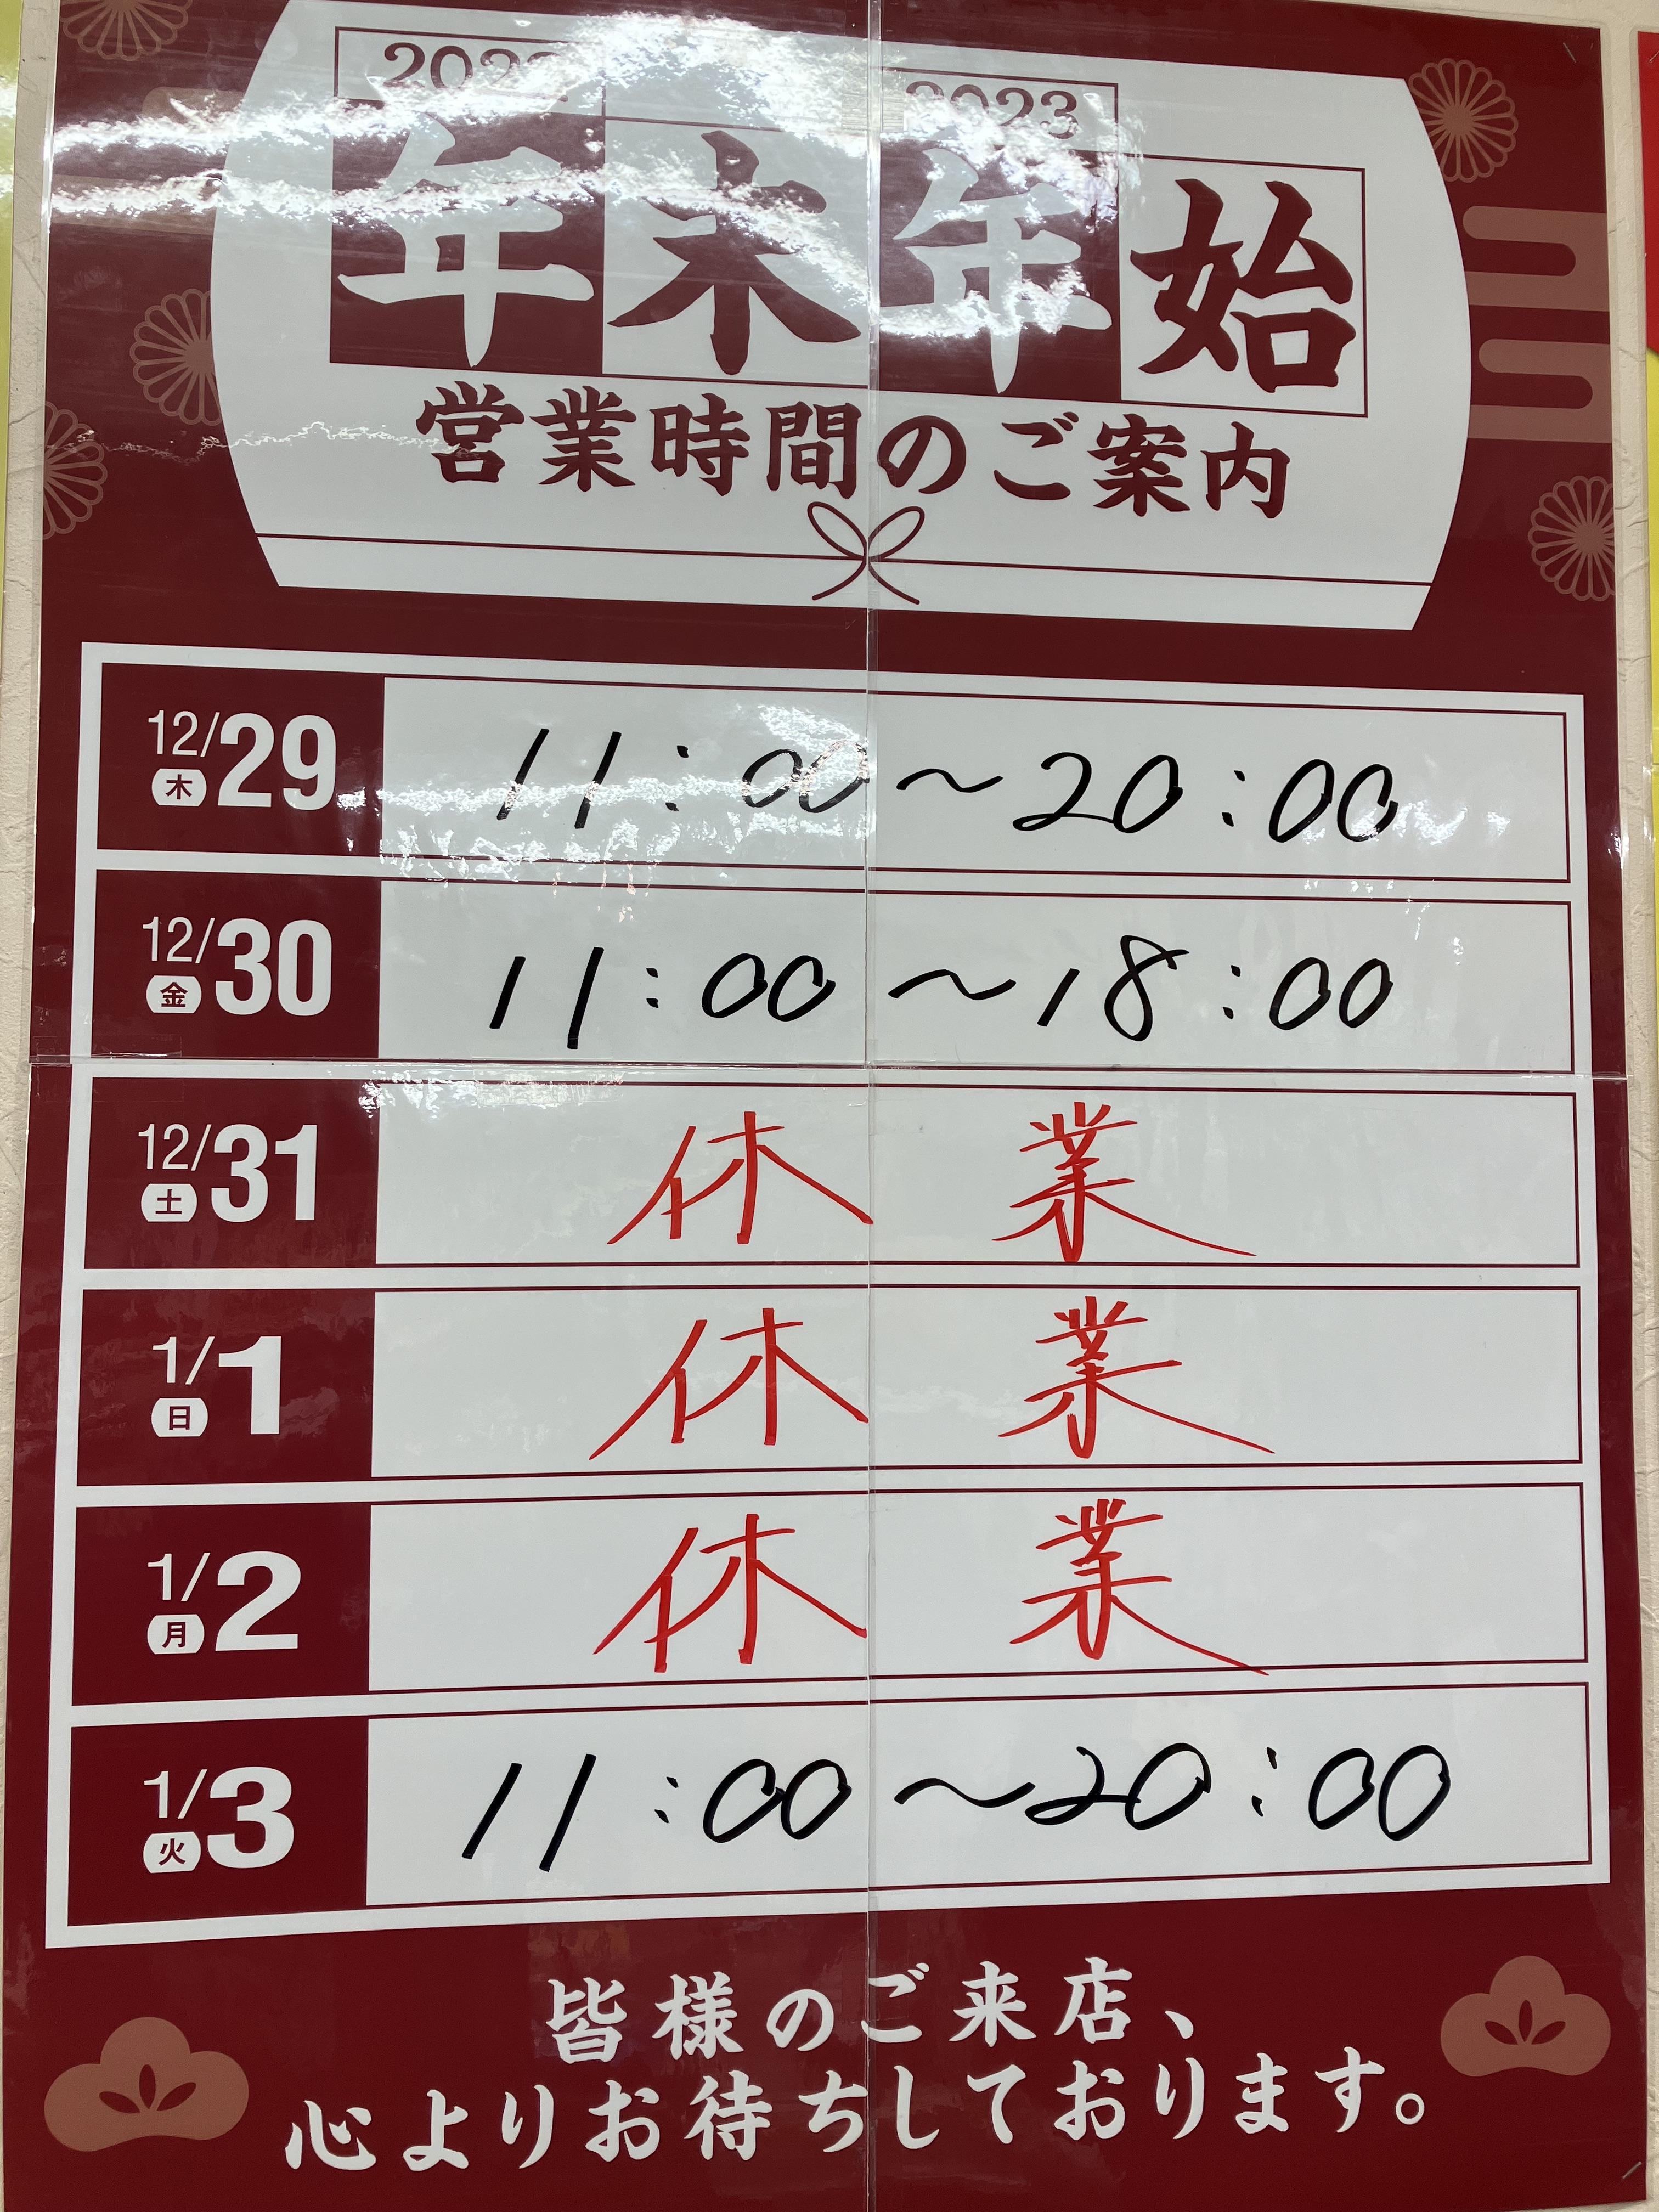 2022 2023
年末年始
営業時間のご案内
12/29 木 11:00～20:00
12/30 金 11:00～18:00
12/31 土 休業
1/1 日 休業
1/2 月 休業
1/3 火 11:00～20:00
皆様のご来店、
心よりお待ちしております。